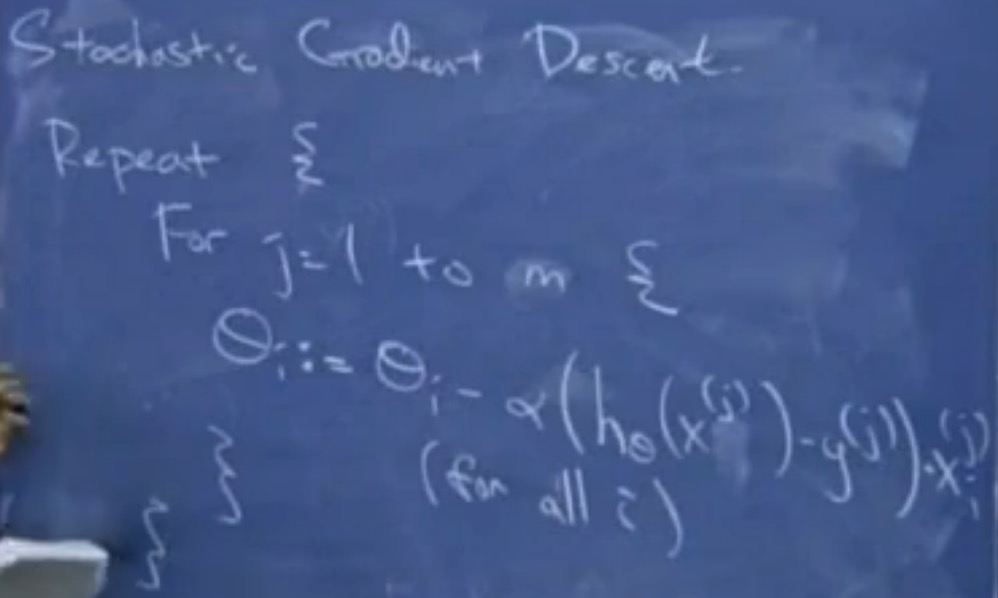 Stochastic Gradient Descent.
Repeat {
For j=1 to m {
Θᵢ := Θᵢ - α(h_θ(x⁽ʲ⁾) - y⁽ʲ⁾)·xᵢ⁽ʲ⁾
} (for all i)
}